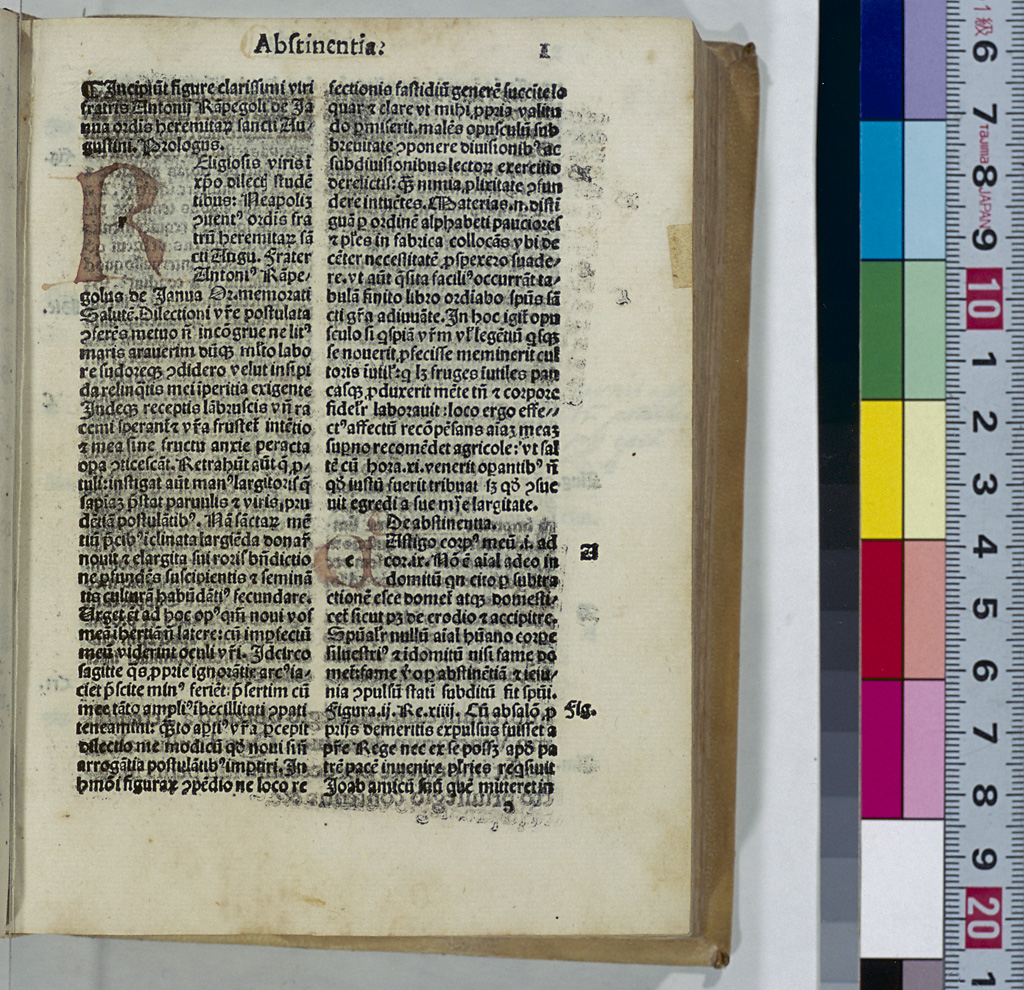 Abstinentia.
I
¶ Incipiũt figure clarissimi viri
fratris Antonii Rãpegoli de Ja
nua ordis heremitaꝝ sancti Au/
gustini. Prologus.
R Eligiosis viris ĩ
xp̃o dilectꝭ studẽ
tibus: Neapoliꝭ
ꝯuentꝰ ordis fra
trũ heremitaꝝ sã
cti Augu. Frater
Antoniꝰ Rãpe/
golus de Janua Or. memorati
Salutẽ. Dilectioni vr̃e postulata
ꝯferẽs metuo ñ incõgrue ne litꝰ
maris arauerim dũqꝫ isto labo
re sudoreqꝫ ꝯdidero velut insipi
da relinq̃tis mei iperitia exigente
Indeqꝫ receptis lãbruscis vñ ra
cemi sperant᷑ ⁊ vr̃a frustret᷑ intẽtio
⁊ mea sine fructu anxie peracta
opa ꝯticescãt. Retrahũt aũt q̃ ꝓ,
tuli: instigat aũt manꝰ largitoris q̃
sapiaꝫ p̃stat paruulis ⁊ viris, pru
dẽtiã postulãtibꝰ. Nã sãctaꝝ mẽ
tiũ p̃cibꝰ iclinata largiẽda donar̃
nouit ⁊ elargita sui roris bñdictio
ne ꝑfundẽs suscipientis ⁊ seminã
tis culturã habũdãtiꝰ fecundare.
Urget et ad hoc opꝰ qm̃ noui vos
meã ihertiã ñ latere: cũ impfectũ
meũ viderint oculi vr̃i. Idcirco
sagitte q̃s ꝓprie ignorãtie arcꝰ ia-
ciet p̃scite minꝰ feriẽt: p̃sertim cũ
mee tãto ampliꝰ ibecillitati ꝯpati
teneamini: q̃to aptiꝰ vr̃a ꝑcepit
dilectio me modicũ qđ noui sin̄
arrogãtia postulãtibꝰ imptiri. In
hmõi figuraꝝ ꝯpẽdio ne loco re
sectionis fastidiũ generẽ succite lo
quar ⁊ clare vt mihi ꝓpria valitu
do ꝑmiserit, malẽs opusculũ sub
breuitate ꝯponere diuisionibꝰ ac
subdiuisionibus lectoꝝ exercitio
derelictis: q̃ꝫ nimia ꝓlixitate ꝯfun
dere intuẽtes. Materias.n. disti
guã ꝑ ordinẽ alphabeti pauciores
⁊ pl̃es in fabrica collocãs vbi de
cẽter necessitatẽ ꝓspexero suade/
re. vt aũt q̃sita faciliꝰ occurrãt ta/
bulã finito libro ordiabo spũs sã
cti gr̃a adiuuãte. In hoc igit᷑ opu
sculo si q̃spiã vr̃m vl̓ legẽtiũ q̃sqꝫ
se nouerit, ꝓfecisse meminerit cul
toris iutil̓: q lꝫ fruges iutiles pau
casqꝫ ꝓduxerit mẽte tñ ⁊ corpore
fidel̓r laborauit: loco ergo effe//
ctꝰ affectũ recõpẽsans aiaꝫ meaꝫ
supno recomẽdet agricole: vt sal
tẽ cũ hora.xi. venerit oꝑantibꝰ ñ
qđ iustũ fuerit tribuat sꝫ qđ ꝯsue
uit egredi a sue mĩe largitate.
De abstinentia.
c Astigo corpꝰ meũ .i. ad
cor.ix. Nõ ẽ aial adeo in
domitũ qn cito ꝑ subtra
ctionẽ esce domet᷑ atqꝫ domesti/
cet᷑ sicut pꝫ de erodio ⁊ accipitre.
Spũal̓r nullũ aial hũano corpe
siluestriꝰ ⁊ idomitũ nisi fame do
met᷑: fame vo ꝑ abstinẽtiã ⁊ ieiu/
nia ꝯpulsũ stati subditũ fit spũi.
Figura.ij. Re.xiiij. Cũ absalõ ꝓ
prijs demeritis expulsus fuisset a
pr̃e Rege nec ex se possꝫ apđ pa
trẽ pacẽ inuenire pl̃ries reqsiuit
Joab amicũ suũ quẽ mitteret in
A
Fig.
a